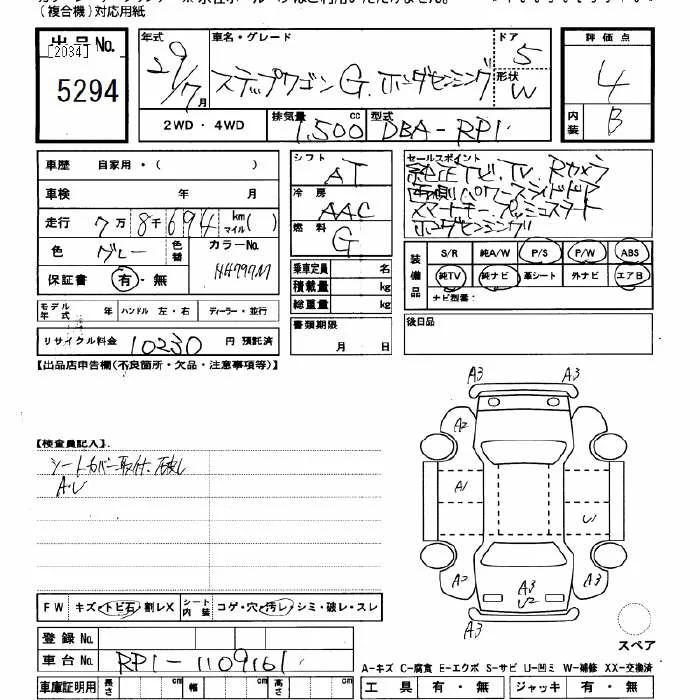 (複合機)対応用紙
出品No.
[2034]
5294
年式
29/7月
車名・グレード
ステップワゴン G. ホンダセンシング
ドア
5
形状
W
評価点
4
内装
B
2WD・4WD
排気量
1,500cc
型式
DBA-RP1
車歴 自家用・( )
車検 年 月
走行 7万8千694km マイル( )
色 グレー 色替 カラーNo. NH797M
保証書 有・無
モデル年式 年 ハンドル 左・右 ディーラー・並行
リサイクル料金 10230 円 預託済
シフト AT
冷房 AAC
燃料 G
乗車定員 名
積載量 kg
総重量 kg
書類期限
月 日
セールスポイント
純正ナビ.TV.Rカメラ
両側パワースライドドア
スマートキー.プッシュスタート
ホンダセンシング
装備品
S/R 純A/W P/S P/W ABS
純TV 純ナビ 革シート 外ナビ エアB
ナビ型番:
後日品
【出品店申告欄(不良箇所・欠品・注意事項等)】
【検査員記入】
シートカバー取付.
A.U
A3 A3
A2
A1
U1
A2
A3
U2
A3
スペア
FW キズ・トビ石・割レX シート内装 コゲ・穴・汚レ・シミ・破レ・スレ
登録No.
車台No. RP1-1109161
車庫証明用 長さ cm 幅 cm 高さ cm
A-キズ C-腐食 E-エクボ S-サビ U-凹ミ W-補修 XX-交換済
工具 有・無 ジャッキ 有・無